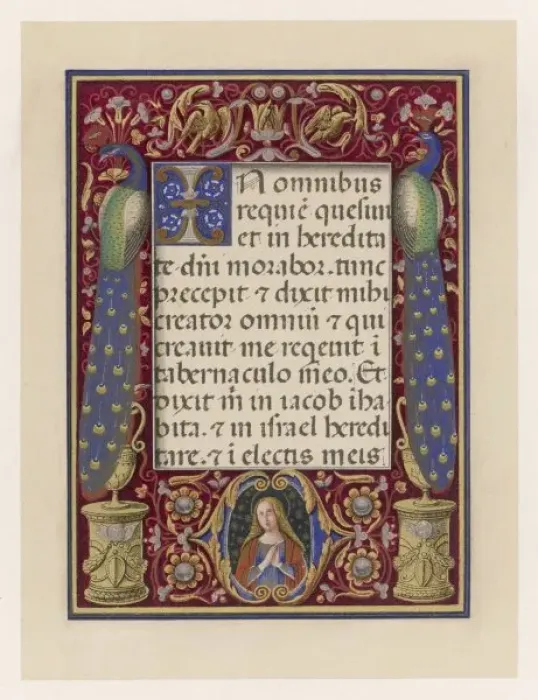 In omnibus
requiē quesiui
et in heredita
te dn̄i morabor. tunc
precepit ⁊ dixit mihi
creator omniū ⁊ qui
creauit me requit ī
tabernaculo meo. Et
dixit m̄ in iacob īha
bita. ⁊ in israel heredi
tare. ⁊ ī electis meis